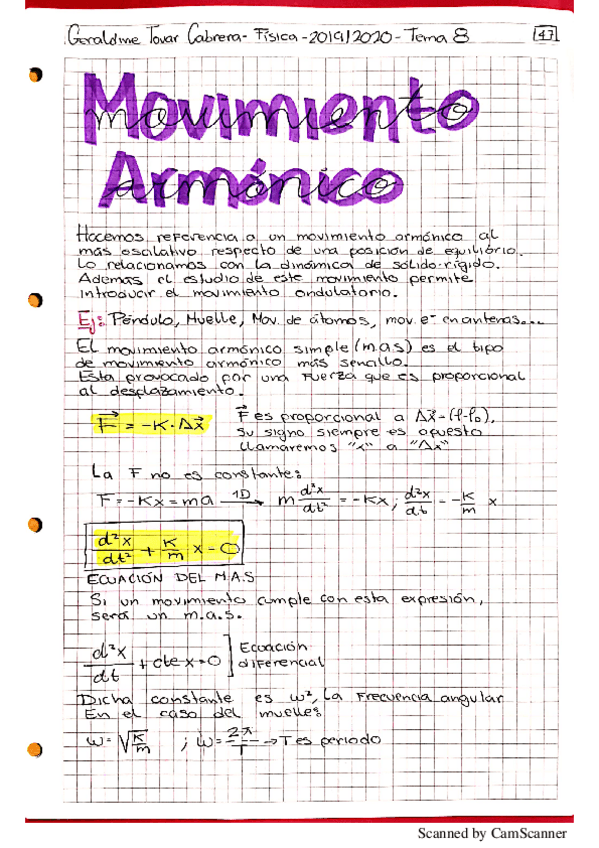 Geraldine Tovar Cabrera - Física - 2019/2020 - Tema 8
47
Movimiento
Armónico
Hacemos referencia a un movimiento armónico al
más oscilativo respecto de una posición de equilibrio.
Lo relacionamos con la dinámica de sólido-rígido.
Además el estudio de este movimiento permite
introducir el movimiento ondulatorio.
Ej: Péndulo, Muelle, Mov. de átomos, mov. e⁻ en antenas...
El movimiento armónico simple (m.a.s) es el tipo
de movimiento armónico más sencillo.
Esta provocado por una fuerza que es proporcional
al desplazamiento.
F⃗ = -K · Δx⃗
F⃗ es proporcional a Δx⃗ - (l-l₀).
Su signo siempre es opuesto
llamaremos "x" a "Δx"
La F no es constante:
F = -Kx = ma 1D→ m d²x/dt² = -Kx ; d²x/dt = -K/m x
d²x/dt² + K/m x = 0
ECUACIÓN DEL M.A.S
Si un movimiento cumple con esta expresión,
será un m.a.s.
d²x/dt + cte x = 0 ] Ecuación
diferencial
Dicha constante es ω², la frecuencia angular
En el caso del muelle:
ω = √K/m ; ω = 2π/T → T es periodo
Scanned by CamScanner